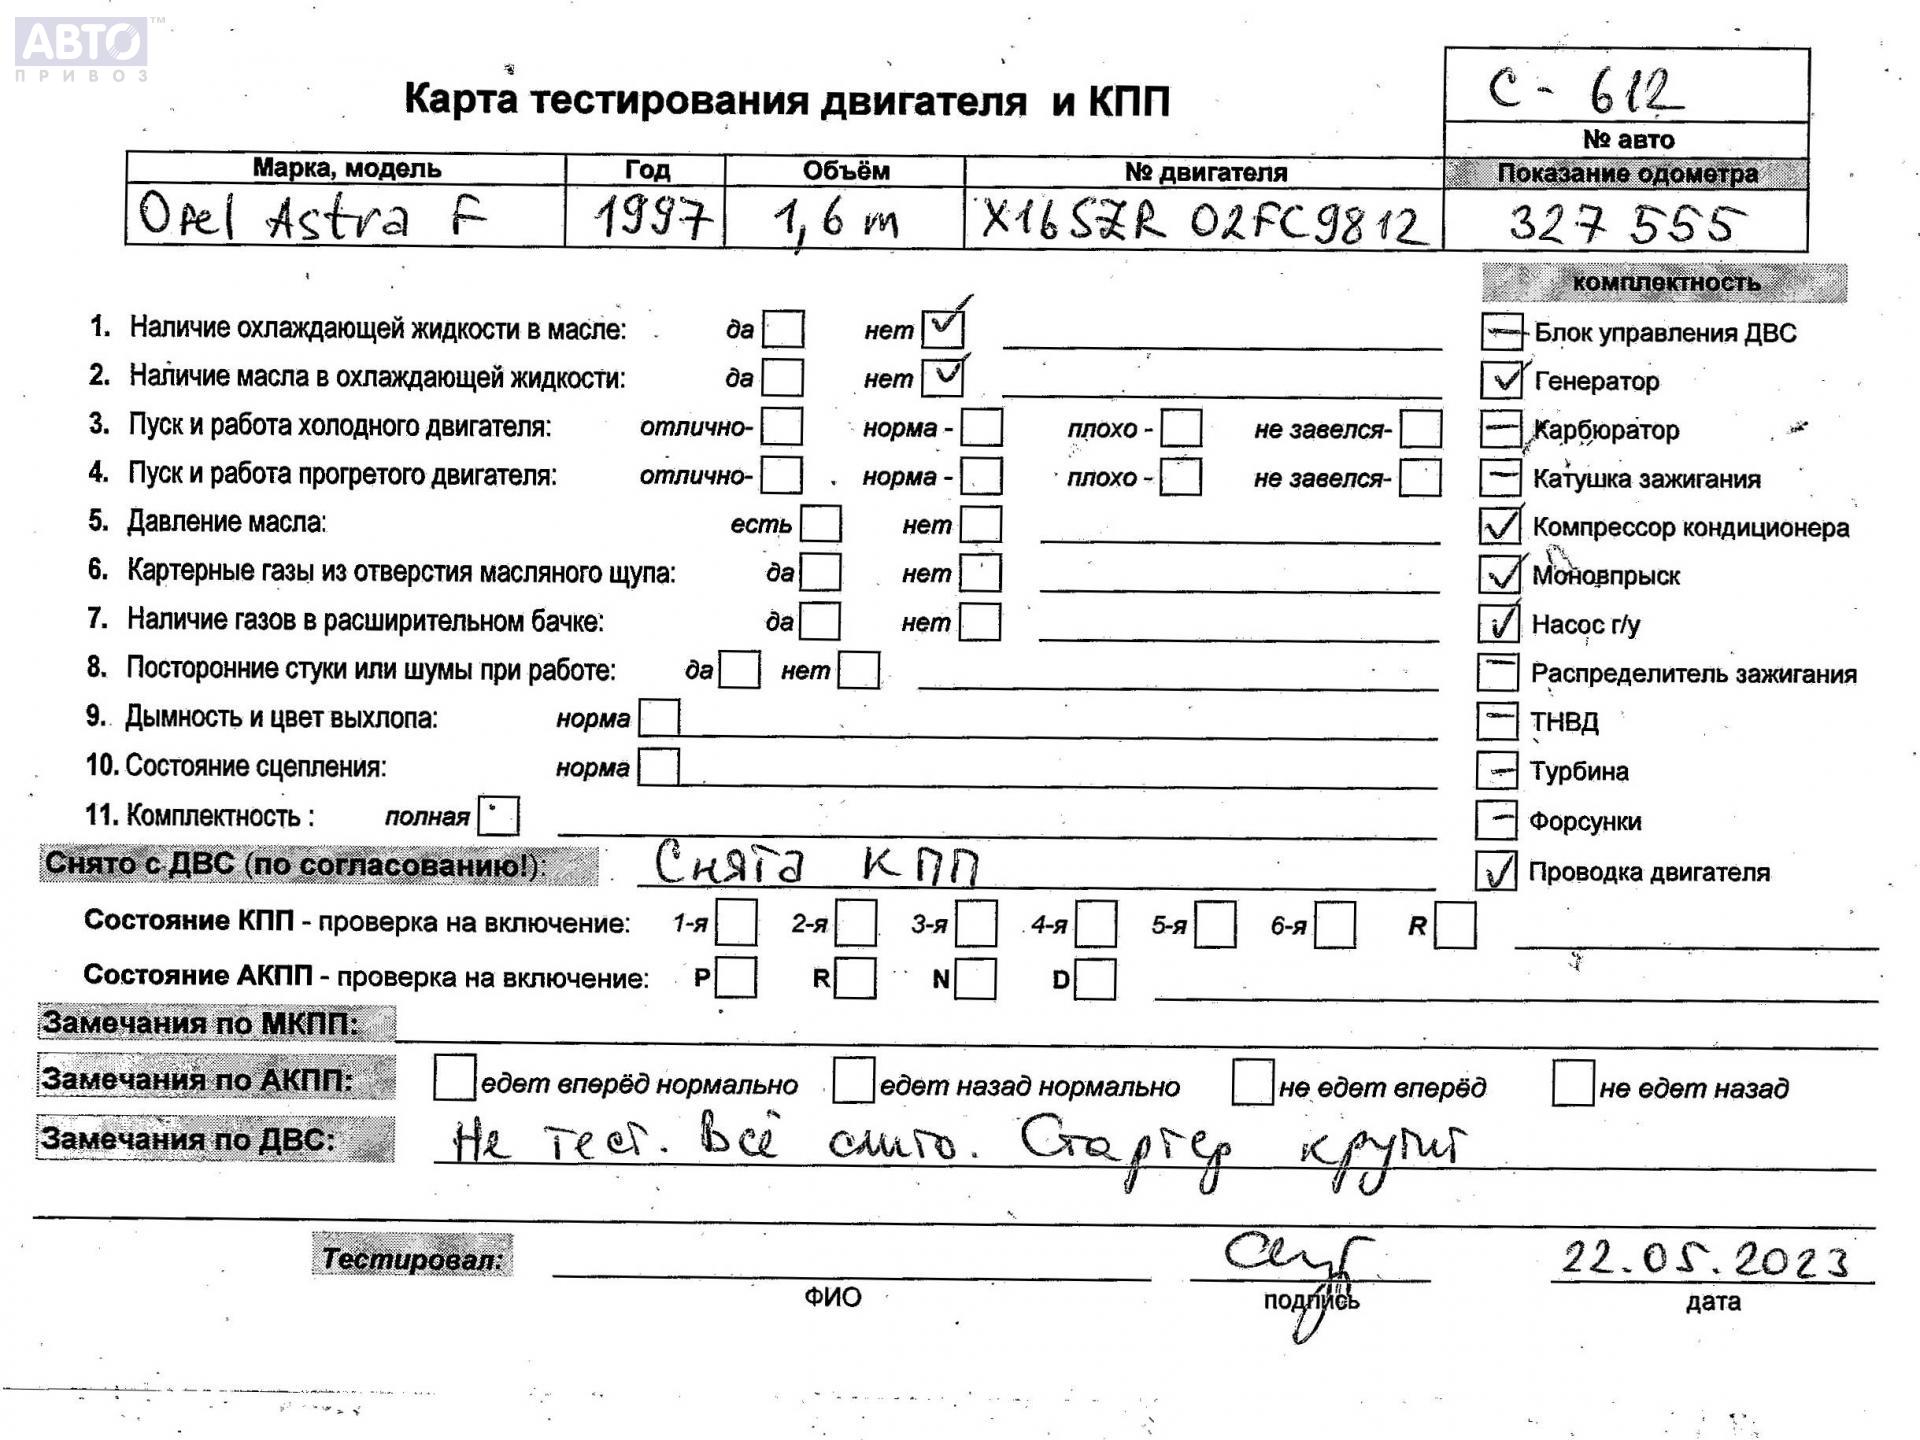 АВТО™
ПРИВОЗ
Карта тестирования двигателя и КПП
С - 612
№ авто
Марка, модель Год Объём № двигателя Показание одометра
Opel Astra F 1997 1,6 m X16SZR 02FC9812 327 555
комплектность
1. Наличие охлаждающей жидкости в масле: да нет ✓
2. Наличие масла в охлаждающей жидкости: да нет ✓
3. Пуск и работа холодного двигателя: отлично- норма - плохо - не завелся-
4. Пуск и работа прогретого двигателя: отлично- норма - плохо - не завелся-
5. Давление масла: есть нет
6. Картерные газы из отверстия масляного щупа: да нет
7. Наличие газов в расширительном бачке: да нет
8. Посторонние стуки или шумы при работе: да нет
9. Дымность и цвет выхлопа: норма
10. Состояние сцепления: норма
11. Комплектность : полная
— Блок управления ДВС
✓ Генератор
— Карбюратор
— Катушка зажигания
✓ Компрессор кондиционера
✓ Моновпрыск
✓ Насос г/у
— Распределитель зажигания
— ТНВД
— Турбина
— Форсунки
✓ Проводка двигателя
Снято с ДВС (по согласованию!): Снята КПП
Состояние КПП - проверка на включение: 1-я 2-я 3-я 4-я 5-я 6-я R
Состояние АКПП - проверка на включение: P R N D
Замечания по МКПП:
Замечания по АКПП: едет вперёд нормально едет назад нормально не едет вперёд не едет назад
Замечания по ДВС: Не тест. Всё слито. Стартер крутит
Тестировал: 22.05.2023
ФИО подпись дата